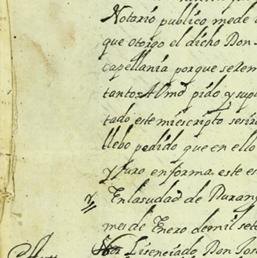 Notario publico mede
que otorgo el dicho Don
capellania porque
tanto. A Vmd pido y sup
tado este miescripto se
llebo pedido que en ello
y Juro enforma este es
En lasudad de Durang
mes de Enero demil sete
Licenciado, Don Jos